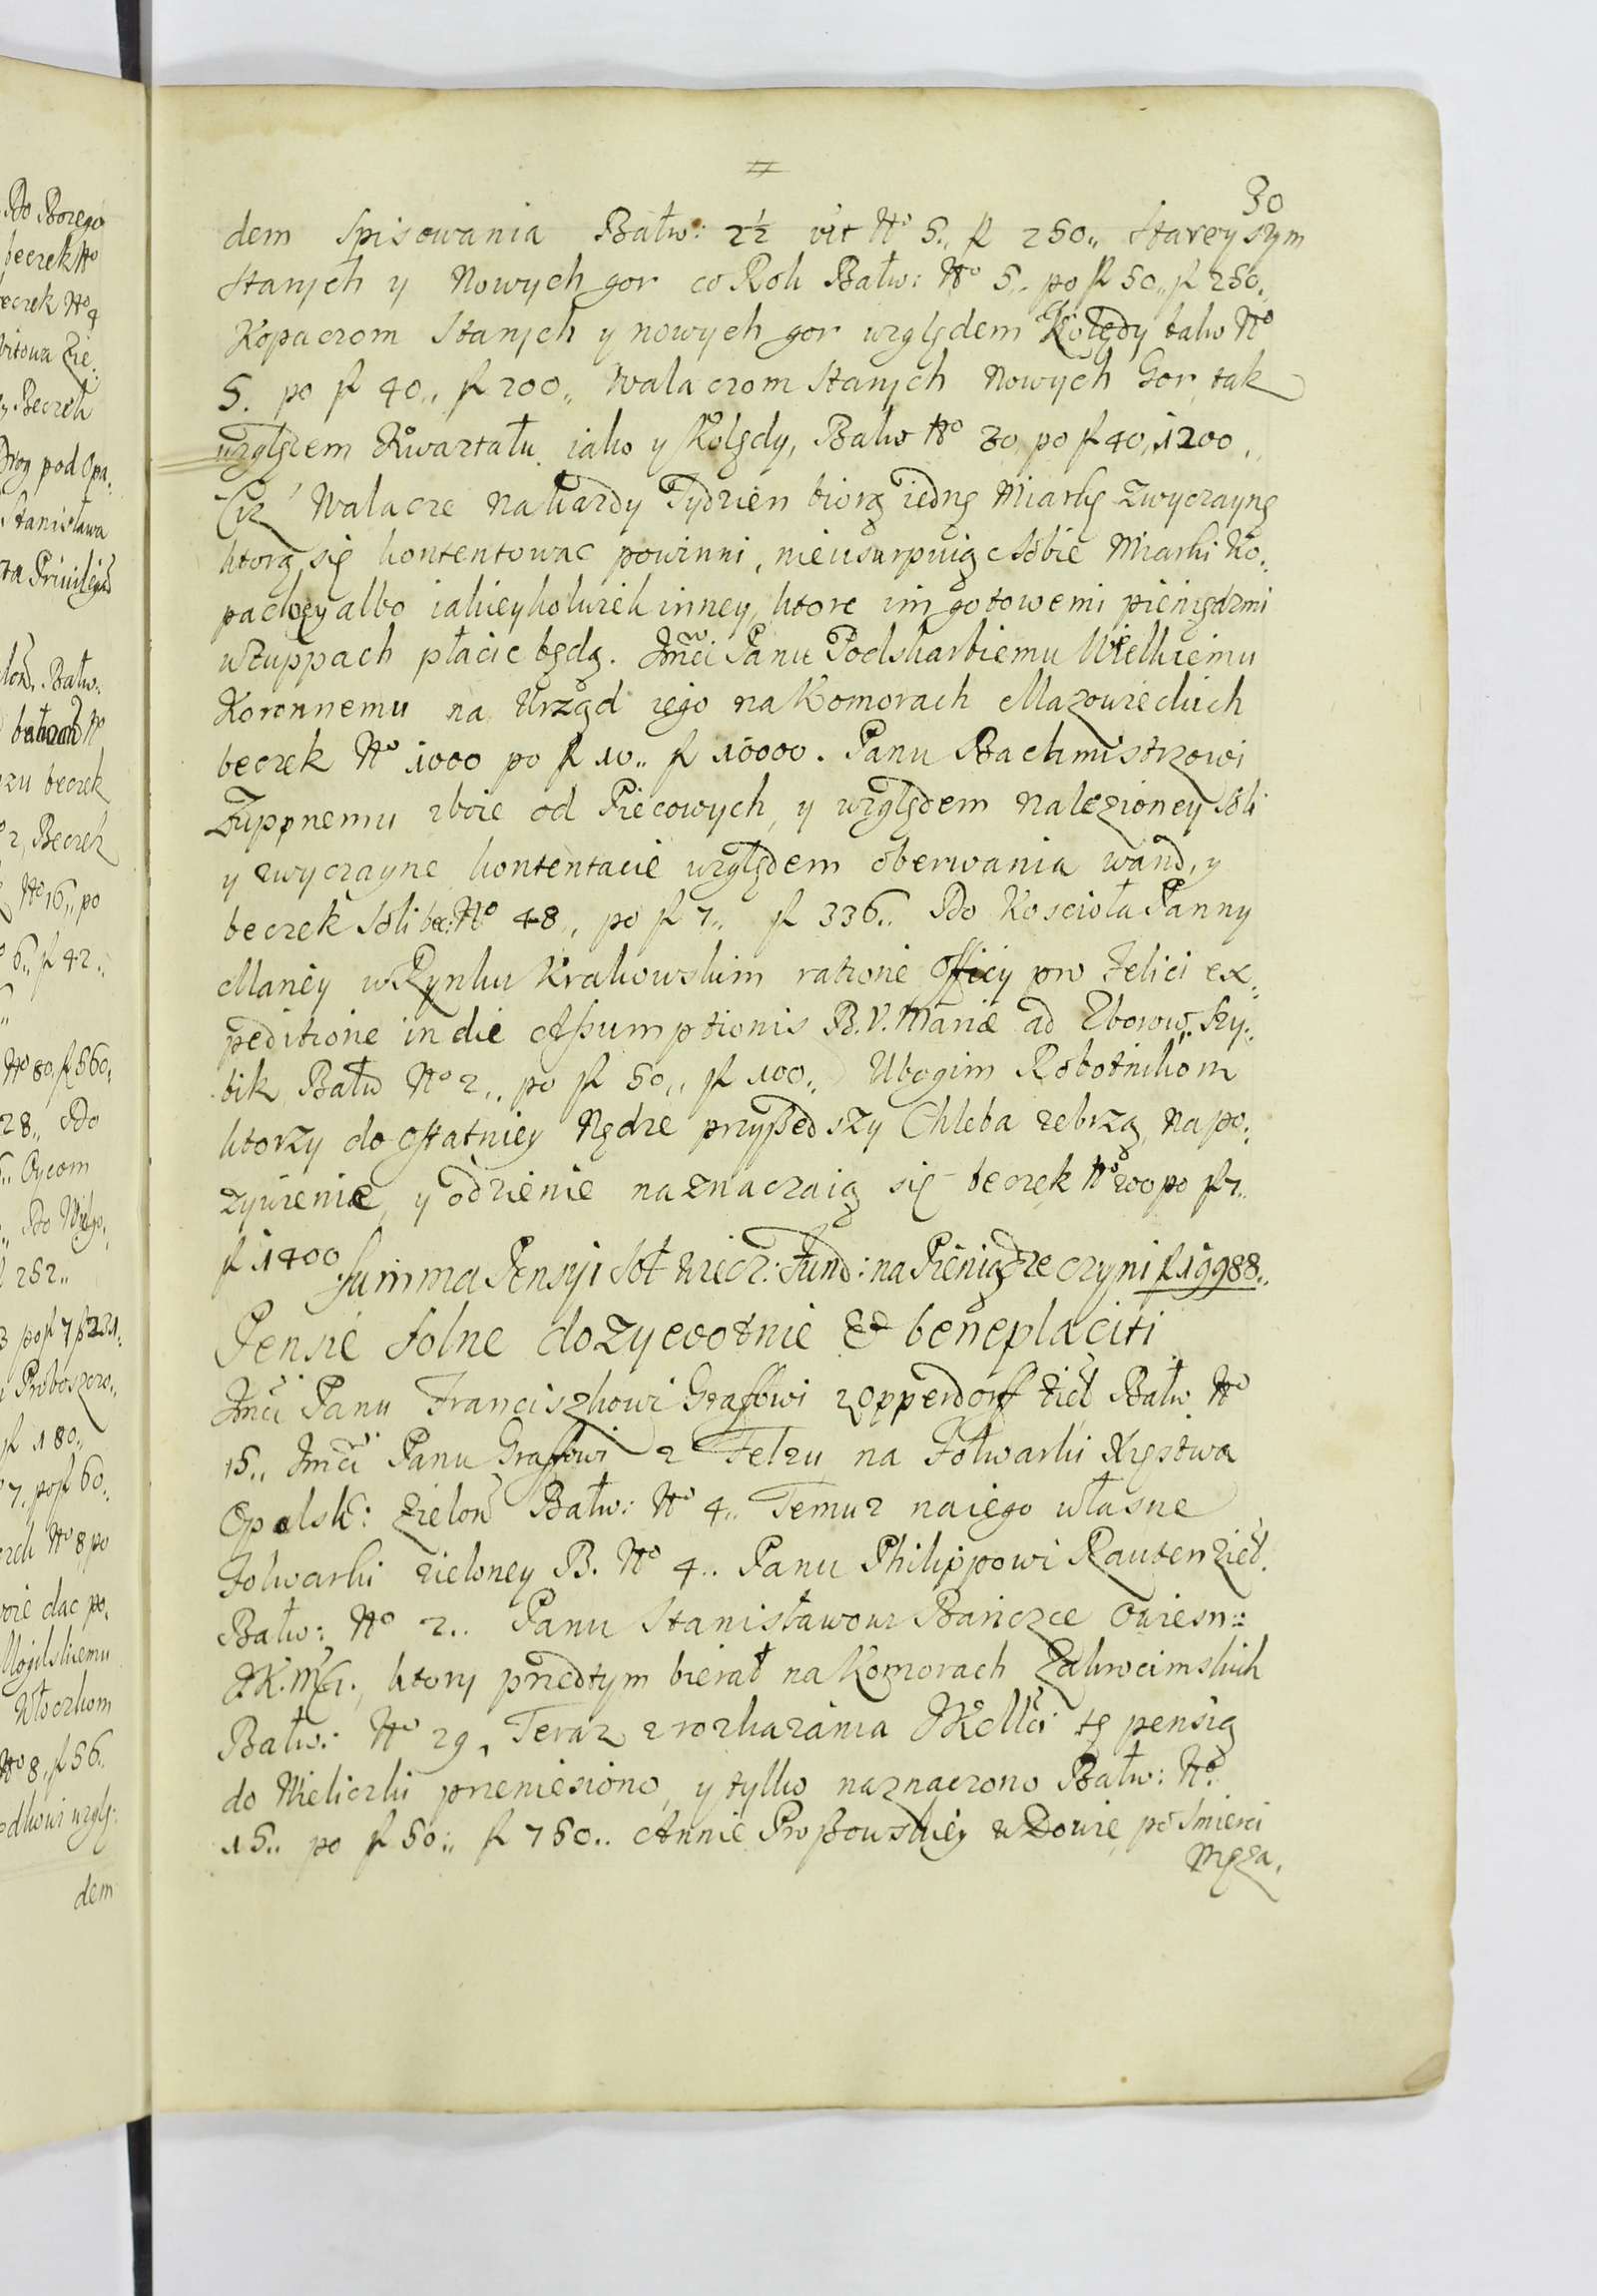 Do Bozego
beczek No
beczek No 4
Beczek
pod Opa:
Stanisława
Bałw:
beczek
2, Beczek
No 16,, po
6,, f 42,,
No 80. f 560,,
28,, Do
Oycom
f 252,,
3 po f 7 f 231.
f 180,,
7. po f 60,,
No 8 po
dac po,
No 8, f 56.
dem
30
dem spisowania Bałw: 2½ vit No 5,, f 250,, Stareyszym
Starych y Nowych gor co Rok Bałw: No 5. po f 50,, f 250,,
Kopaczom Starych y nowych gor względem Kolędy bałw No
5. po f 40,, f 200,, Walaczom Starych Nowych Gor, tak
względem Kwartału iako y Kolędy, Bałw No 30 po f 40, 1200,,
Ciz Walacze na kazdy Tydzien biorą iednę Miarkę zwyczayną
ktorą się kontentowac powinni, nieusurpuiąc sobie Miarki Ko:
packiey albo iakieykolwiek inney, ktore im gotowemi pieniędzmi
w Zuppach płacic będą. Jmći Panu Podskarbiemu Wielkiemu
Koronnemu na Urząd iego na Komorach Mazowieckich
beczek No 1000 po f 10,, f 10000. Panu Bachmistrzowi
Zuppnemu zboie od Piecowych, y względem nalezioney Soli
y zwyczayne kontentacie względem oberwania wand, y
beczek Soli bec: No 48,, po f 7,, f 336,, Do Koscioła Panny
Mariey w Rynku Krakowskim ratione Officy pro felici ex:
peditione in die Assumptionis B. V. Mariæ ad Zborow: Szy:
bik Bałw No 2,, po f 50,, f 100,, Ubogim Robotnikom
ktorzy do ostatniey Nędze przyszedszy Chleba zebrzą, na po:
zywienie, y odzienie naznaczaią się beczek No 200 po f 7,,
f 1400
Summa Pensyi Soł wiecz: Fund: na Pieniądze czyni f 19988,,
Pensie Solne dozywotnie et beneplaciti
Jmći Panu Franciszkowi Graffowi z Opperdorff Ziel Bałw No
15,, Jmći Panu Graffowi z Felzu na Folwarki Xięstwa
Opolsk: Zielon Bałw: No 4,, Temuz na iego własne
Folwarki zieloney B. No 4,, Panu Philippowi Rauten Ziel.
Bałw: No 2,, Panu Stanisławowi Banczce Owiesn::
J.K.Mći., ktory przedtym bierał na Komorach Zakrocimskich
Bałw: No 29, Teraz z rozkazania JKMći tę pensią
do Wieliczki przeniesiono, y tylko naznaczono Bałw: No
15,, po f 50,, f 750,, Annie Proszowskiey wdowie, po smierci
Męza,